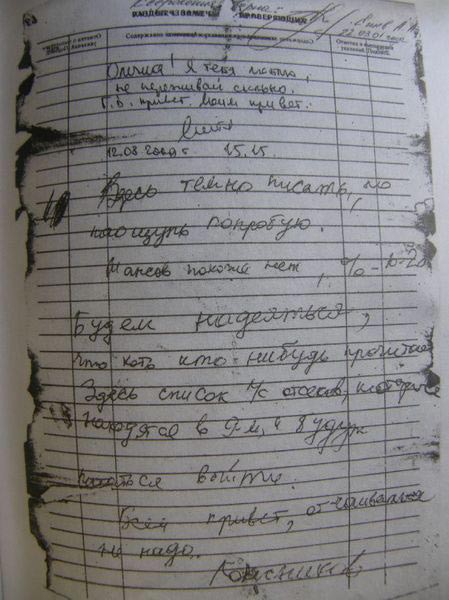 Содержание верно
КАНДЫЕ ЗАМЕЧАНИЯ ПРОВЕРЯЮЩИХ
22.03.01
Олечка! Я тебя люблю,
не переживай сильно.
Г.В. привет. Моим привет.
Митя
12.08 2000 г 15.15.
Здесь темно писать, но
наощупь попробую.
Шансов похоже нет, % 10-20
Будем надеяться,
что хоть кто нибудь прочитает
Здесь список л/с отсеков, которые
находятся в 9-м, и будут
пытаться выйти.
Всем привет, отчаиваться
не надо.
Колесников